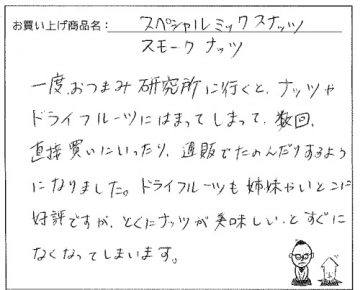 お買い上げ商品名: スペシャルミックスナッツ
スモークナッツ
一度、おつまみ研究所に行くと、ナッツや
ドライフルーツにはまってしまって、数回、
直接買いにいったり、通販でたのんだりするよう
になりました。ドライフルーツも姉妹やいとこに
好評ですが、とくにナッツが美味しいとすぐに
なくなってしまいます。